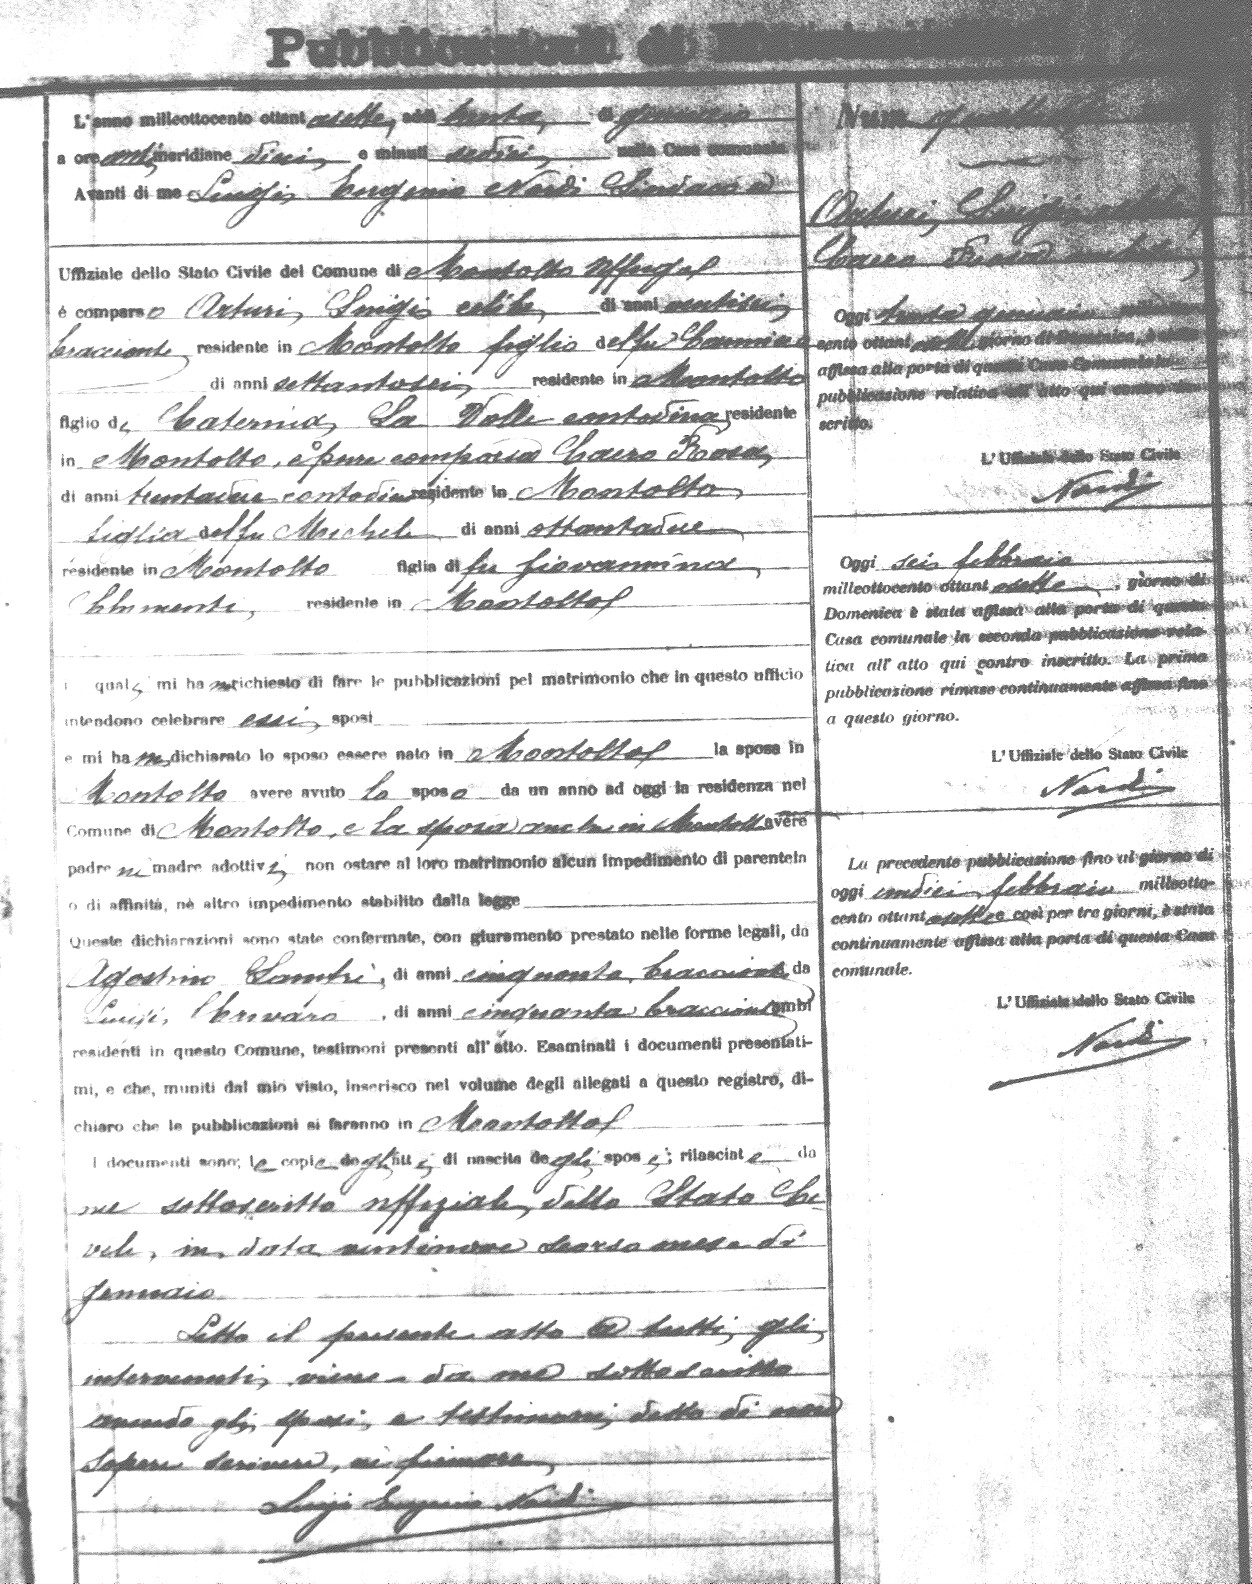 Pubblicazioni di
L'anno milleottocento ottantasette, addì trenta, di gennaio
a ore antimeridiane dieci, e minuti sedici, nella Casa comunale
Avanti di me Luigi Eugenio Nardi Sindaco
Uffiziale dello Stato Civile del Comune di Montalto Uffugo
è comparso Arturi, Luigi, celibe, di anni ventisei,
bracciante, residente in Montalto figlio del fu
di anni settantasei, residente in Montalto
figlio di Caterina, La Valle contadina, residente
in Montalto, è pure comparsa Rosa,
di anni trentadue contadina, residente in Montalto
figlia del fu Michele di anni ottantadue
residente in Montalto figlia di fu Giovannina
residente in Montalto
i quali mi hanno richiesto di fare le pubblicazioni pel matrimonio che in questo ufficio
intendono celebrare essi, sposi
e mi hanno dichiarato lo sposo essere nato in Montalto la sposa in
Montalto avere avuto lo sposo da un anno ad oggi la residenza nel
Comune di Montalto, e la sposa anche in Montalto avere
padre ne madre adottivi, non ostare al loro matrimonio alcun impedimento di parentela
o di affinità, nè altro impedimento stabilito dalla legge
Queste dichiarazioni sono state confermate, con giuramento prestato nelle forme legali, da
Agostino, di anni cinquanta, bracciante, da
Luigi, di anni cinquanta bracciante ambi
residenti in questo Comune, testimoni presenti all'atto. Esaminati i documenti presentati-
mi, e che, muniti dal mio visto, inserisco nel volume degli allegati a questo registro, di-
chiaro che le pubblicazioni si faranno in Montalto
I documenti sono; le copie degli atti di nascita degli sposi; rilasciate da
me sottoscritto uffiziale, dello Stato Ci-
vile, in data ventinove scorso mese di
gennaio
Letto il presente atto a tutti gli
intervenuti, viene da me sottoscritto
avendo gli sposi, e testimoni, detto di non
sapere scrivere, nè firmare,
Luigi Eugenio Nardi
Num
Arturi, Luigi,
Rosa
Oggi trenta gennaio milleotto-
cento ottantasette, giorno di Domenica, è stata
affissa alla porta di questa Casa Comunale la
pubblicazione relativa all'atto qui contro in-
scritto.
L'Uffiziale dello Stato Civile
Nardi
Oggi sei febbraio
milleottocento ottantasette, giorno di
Domenica è stata affissa alla porta di questa
Casa comunale la seconda pubblicazione rela-
tiva all'atto qui contro inscritto. La prima
pubblicazione rimase continuamente affissa fino
a questo giorno.
L'Uffiziale dello Stato Civile
Nardi
La precedente pubblicazione fino al giorno di
oggi undici, febbraio milleotto-
cento ottantasette e così per tre giorni, è stata
continuamente affissa alla porta di questa Casa
comunale.
L'Uffiziale dello Stato Civile
Nardi